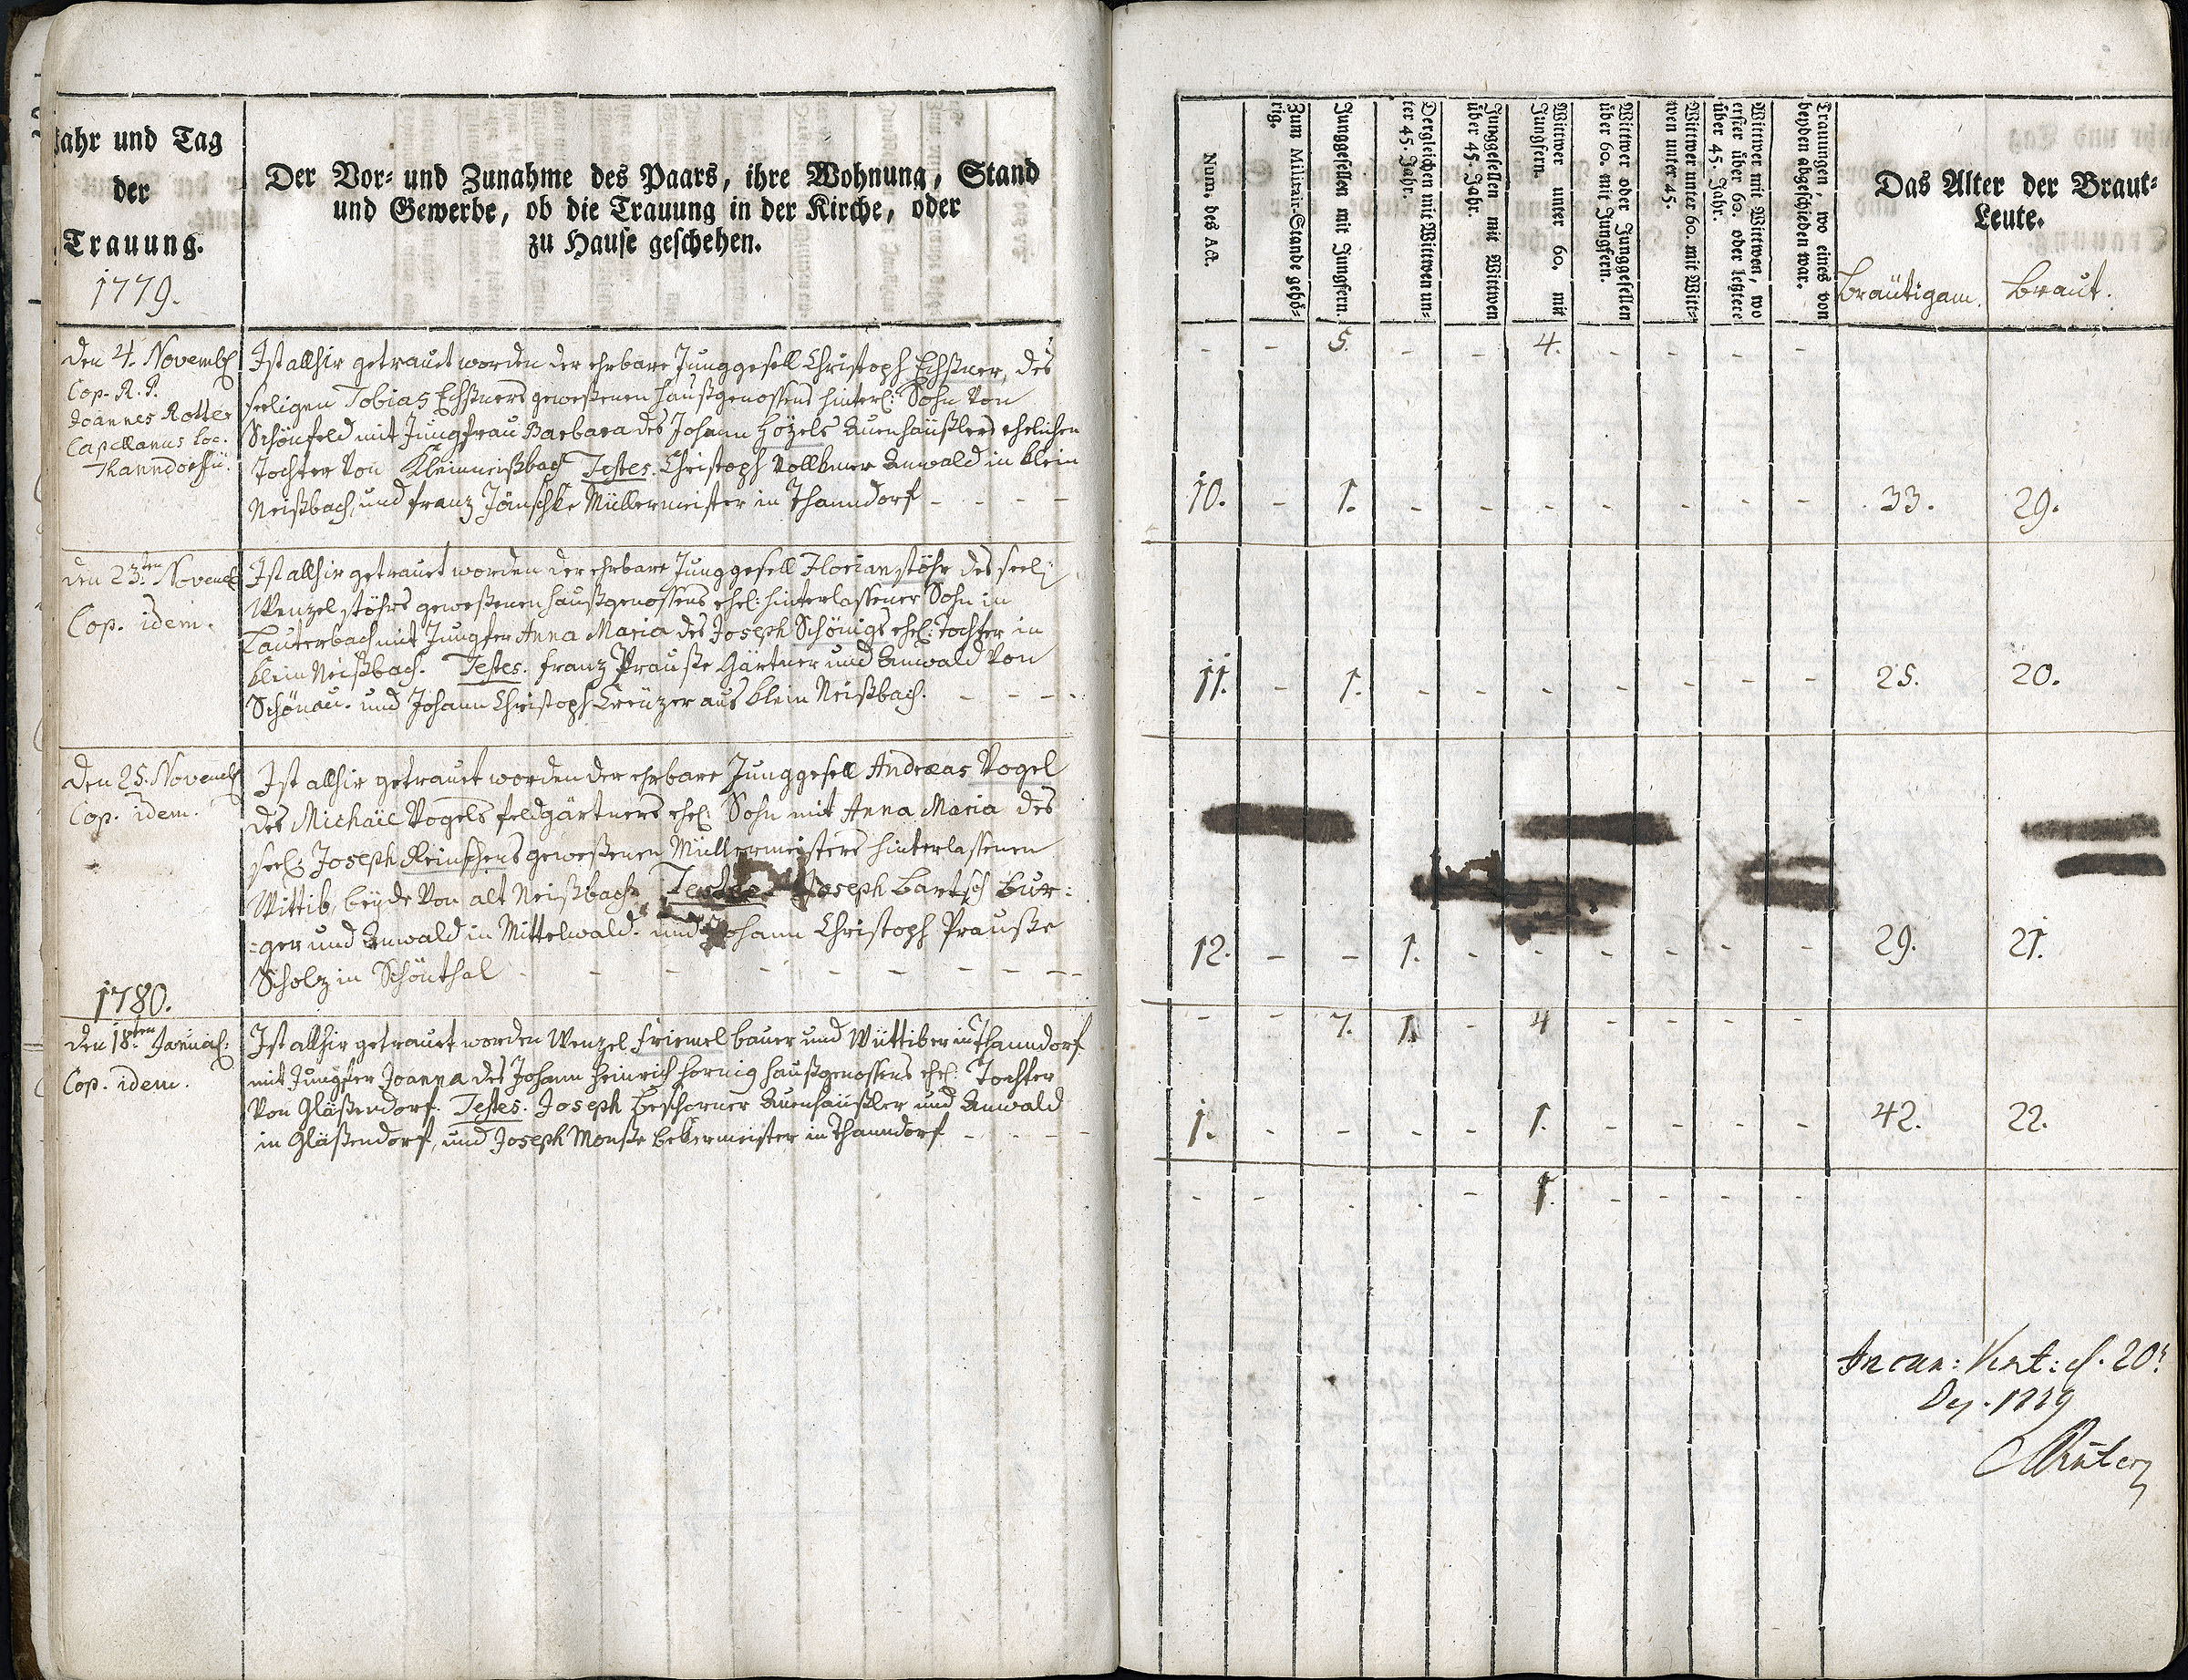 Jahr und Tag
der
Trauung.
1779.
Der Vor- und Zunahme des Paars, ihre Wohnung, Stand
und Gewerbe, ob die Trauung in der Kirche, oder
zu Hause geschehen.
Den 4. Novemb:
Cop. R. P.
Joannes Rotter
Capellanus loc.
Thanndorffii.
Ist allhir getraut worden der ehrbare Junggesell Christoph Echstner, des
seeligen Tobias Echstners geweßenen haußgenossens hinterl: Sohn von
Schönfeld mit Jungfrau Barbara des Johann Hözels Auenhäußlers ehelichen
Tochter von Kleinneißbach Testes. Christoph Vollkmer Anwald in klein
Neißbach, und Franz Jänschke Müllermeister in Thanndorf - - - -
den 23.ten Novemb:
Cop. idem.
Ist allhir getrauet worden der ehrbare Junggesell Florian Stöhr des seel:
Wenzel Stöhrs geweßenen haußgenossens ehel: hinterlassener Sohn in
Lauterbach mit Jungfer Anna Maria des Joseph Schönigs ehel: Tochter in
klein Neißbach. Testes. Franz Prauße Gärtner und Anwald von
Schönau. und Johann Christoph Creüzer aus klein Neißbach. - - - -
Den 25. Novemb:
Cop. idem.
Ist allhir getrauet worden der ehrbare Junggesell Andreas Vogel
des Michael Vogels feldgärtners ehel: Sohn mit Anna Maria des
seel: Joseph Reinschens geweßenen Müllermeisters hinterlassenen
Wittib, beÿde von alt Neißbach. Testes. Joseph Bartsch Bur:
:ger und Anwald in Mittelwald. und Johann Christoph Prauße
Scholz in Schönthal - - - - - - - - -
1780.
den 18.ten Januar:
Cop. idem.
Ist allhir getrauet worden Wenzel Friemel bauer und Wüttiber in Thanndorf
mit Jungfer Joanna des Johann Heinrich Hornig haußgenossens ehel: Tochter
von Gläßendorf. Testes. Joseph Beschorner Auenhäußler und Anwald
in Gläßendorf, und Joseph Monße bekermeister in Thanndorf - - - -
Num. des Act.
Zum Militair-Stande gehö-
rig.
Junggesellen mit Jungfern.
Dergleichen mit Wittwen un-
ter 45. Jahr.
Junggesellen mit Wittwen
über 45. Jahr.
Wittwer unter 60. mit
Jungfern.
Wittwer oder Junggesellen
über 60. mit Jungfern.
Wittwer unter 60. mit Witt-
wen unter 45.
Wittwer mit Wittwen, wo
erster über 60. oder letztere
über 45. Jahr.
Trauungen, wo eines von
beyden abgeschieden war.
Das Alter der Braut-
Leute.
Bräutigam. Braut.
- - 5. - - 4. - - - -
10. - 1. - - - - - - - 33. 29.
11. - 1. - - - - - - - 25. 20.
12. - - 1. - - - - - - 29. 21.
- - 7. 1. - 4 - - - -
1. - - - - 1. - - - - 42. 22.
- - . . - 1. - - - -